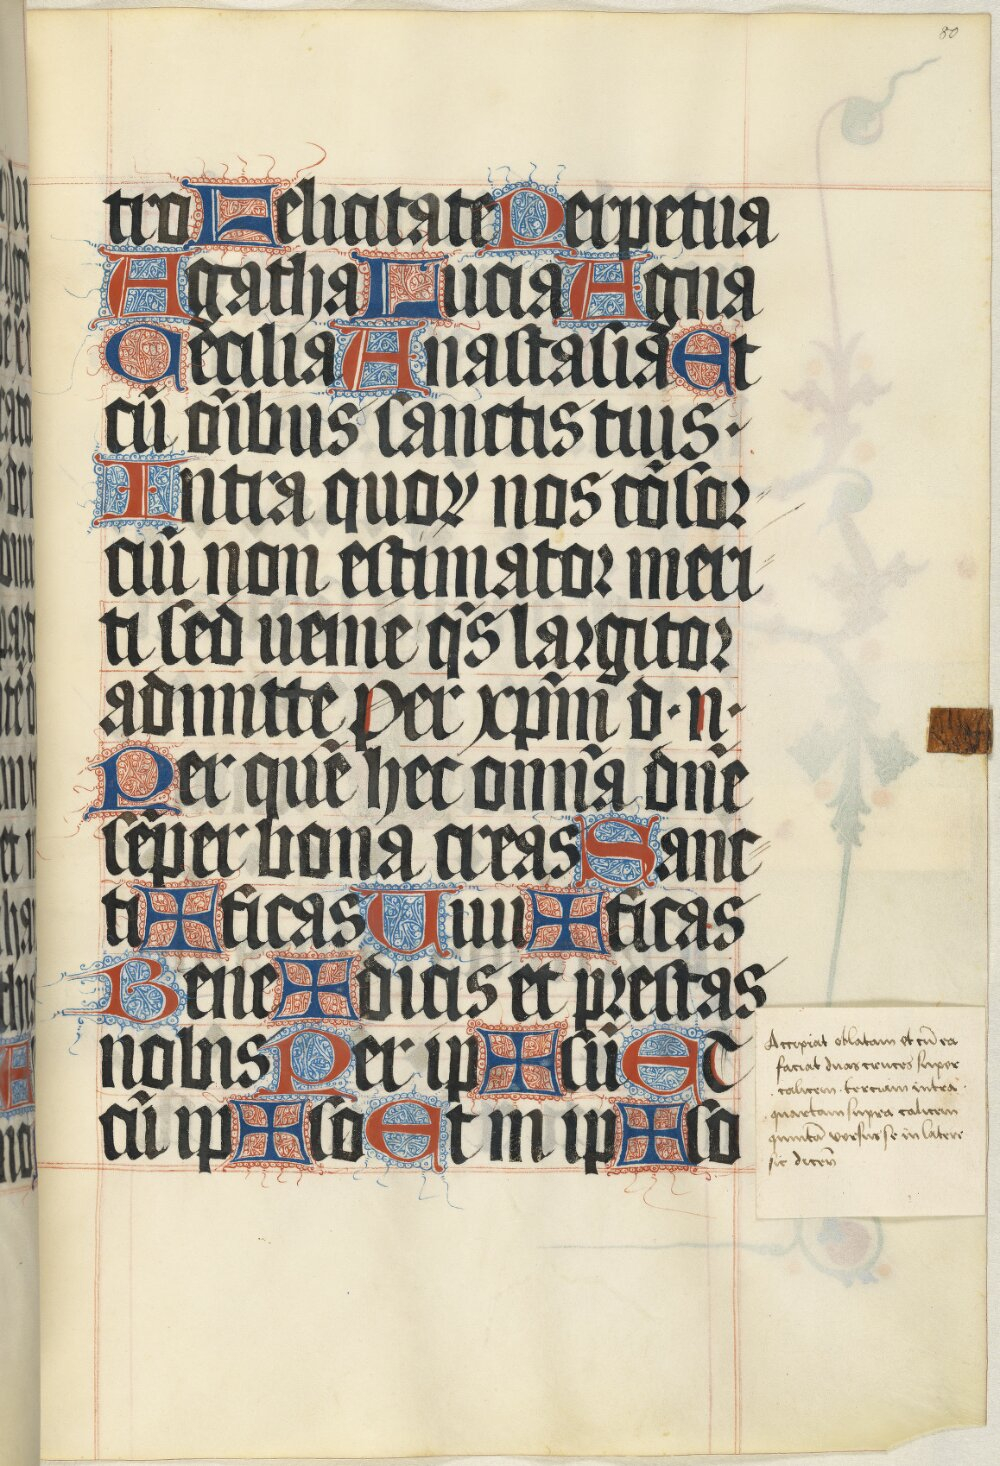 80
tro Felicitate Perpetua
Agatha Lucia Agna
Cecilia Anastasia Et
cū oībus sanctis tuis·
Intra quoꝝ nos cōsor
ciū non estimator meri
ti sed uenie q̄s largitor
admitte Per xp̄m d·n·
Per quē hec omīa dn̄e
sēper bona creas Sanc
ti✠ficas Uiui✠ficas
Bene✠dicis et prestas
nobis Per ip✠cū ET
cū ip✠so Et in ip✠so
Accipiat oblatam et cū ea
faciat duas cruces super
calicem· terciam intra·
quartam supra calicem
quintā versus se in latere
sic dicen̄